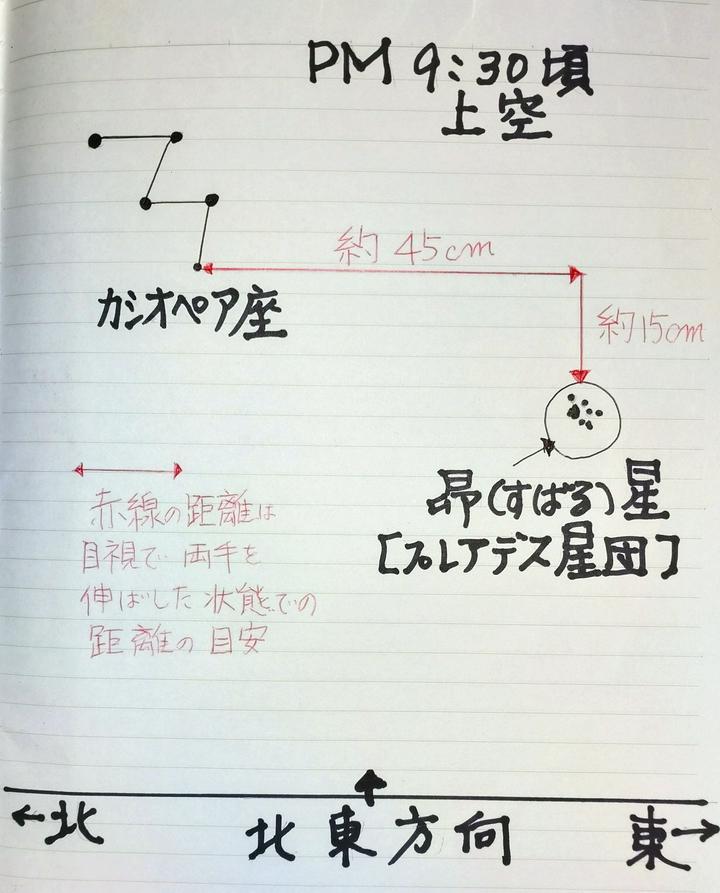 PM 9:30頃
上空
約45cm
カシオペア座
約15cm
昴(すばる)星
[プレアデス星団]
赤線の距離は
目視で両手を
伸ばした状態での
距離の目安
←北
北東方向
東→